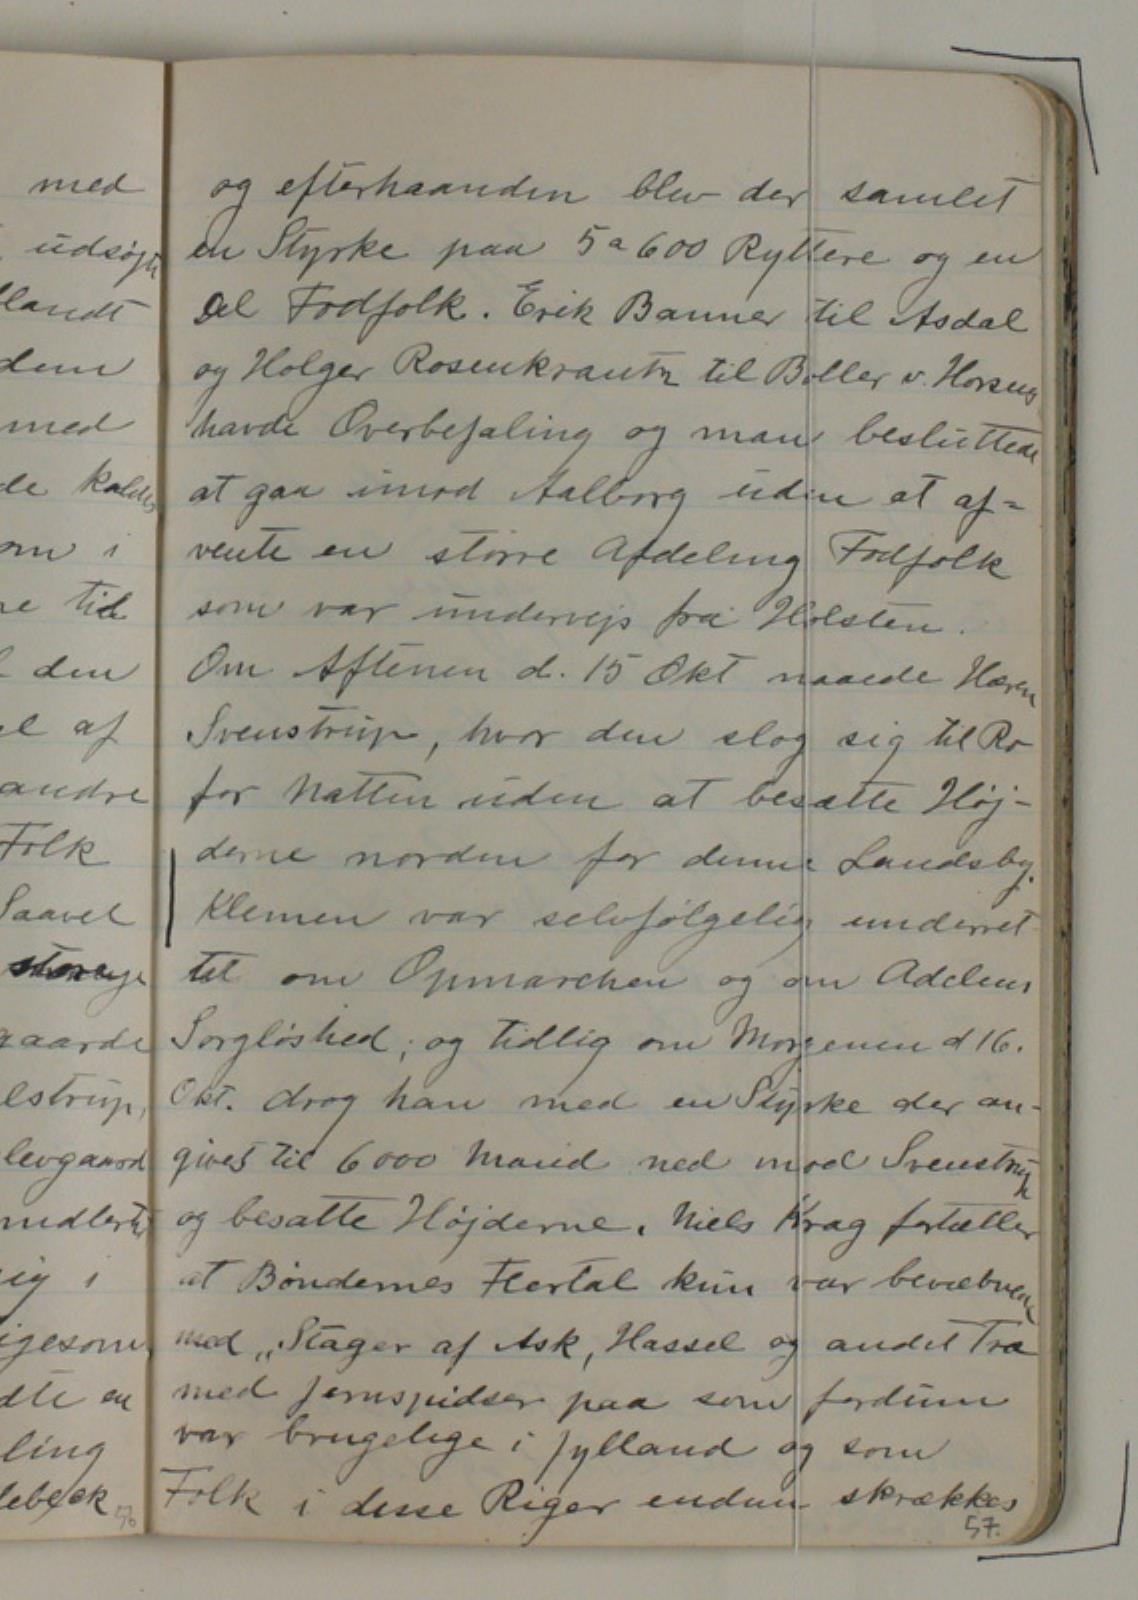 med
udsøgte
blandt
dem
med
de kaldes
om i
re til
den
el af
andre
Folk
Saavel
gaarde
elstrup,
levgaard
midlertid
sig i
igesom
dte en
ling
lebæk 56
og efterhaanden blev der samlet
en Styrke paa 5 a 600 Ryttere og en
Del Fodfolk. Erik Banner til Asdal
og Holger Rosenkrantz til Boller v. Horsens
havde Overbefaling og man besluttede
at gaa imod Aalborg uden at af=
vente en større Afdeling Fodfolk
som var undervejs fra Holsten.
Om Aftenen d. 15 Okt naaede Hæren
Svenstrup, hvor den slog sig til Ro
for Natten uden at besætte Høj-
derne norden for denne Landsby.
Klemen var selvfølgelig underret
tet om Opmarchen og om Adelens
Sorgløshed; og tidlig om Morgenen d 16.
Okt. drog han med en Styrke der an-
gives til 6000 Mand ned imod Svenstrup
og besatte Højderne. Niels Krag fortæller
at Bøndernes Flertal kun var bevæbnede
med „Stager af Ask, Hassel og andet Træ
med Jernspidser paa som fordum
var brugelige i Jylland og som
Folk i disse Riger endnu skrækkes
57.